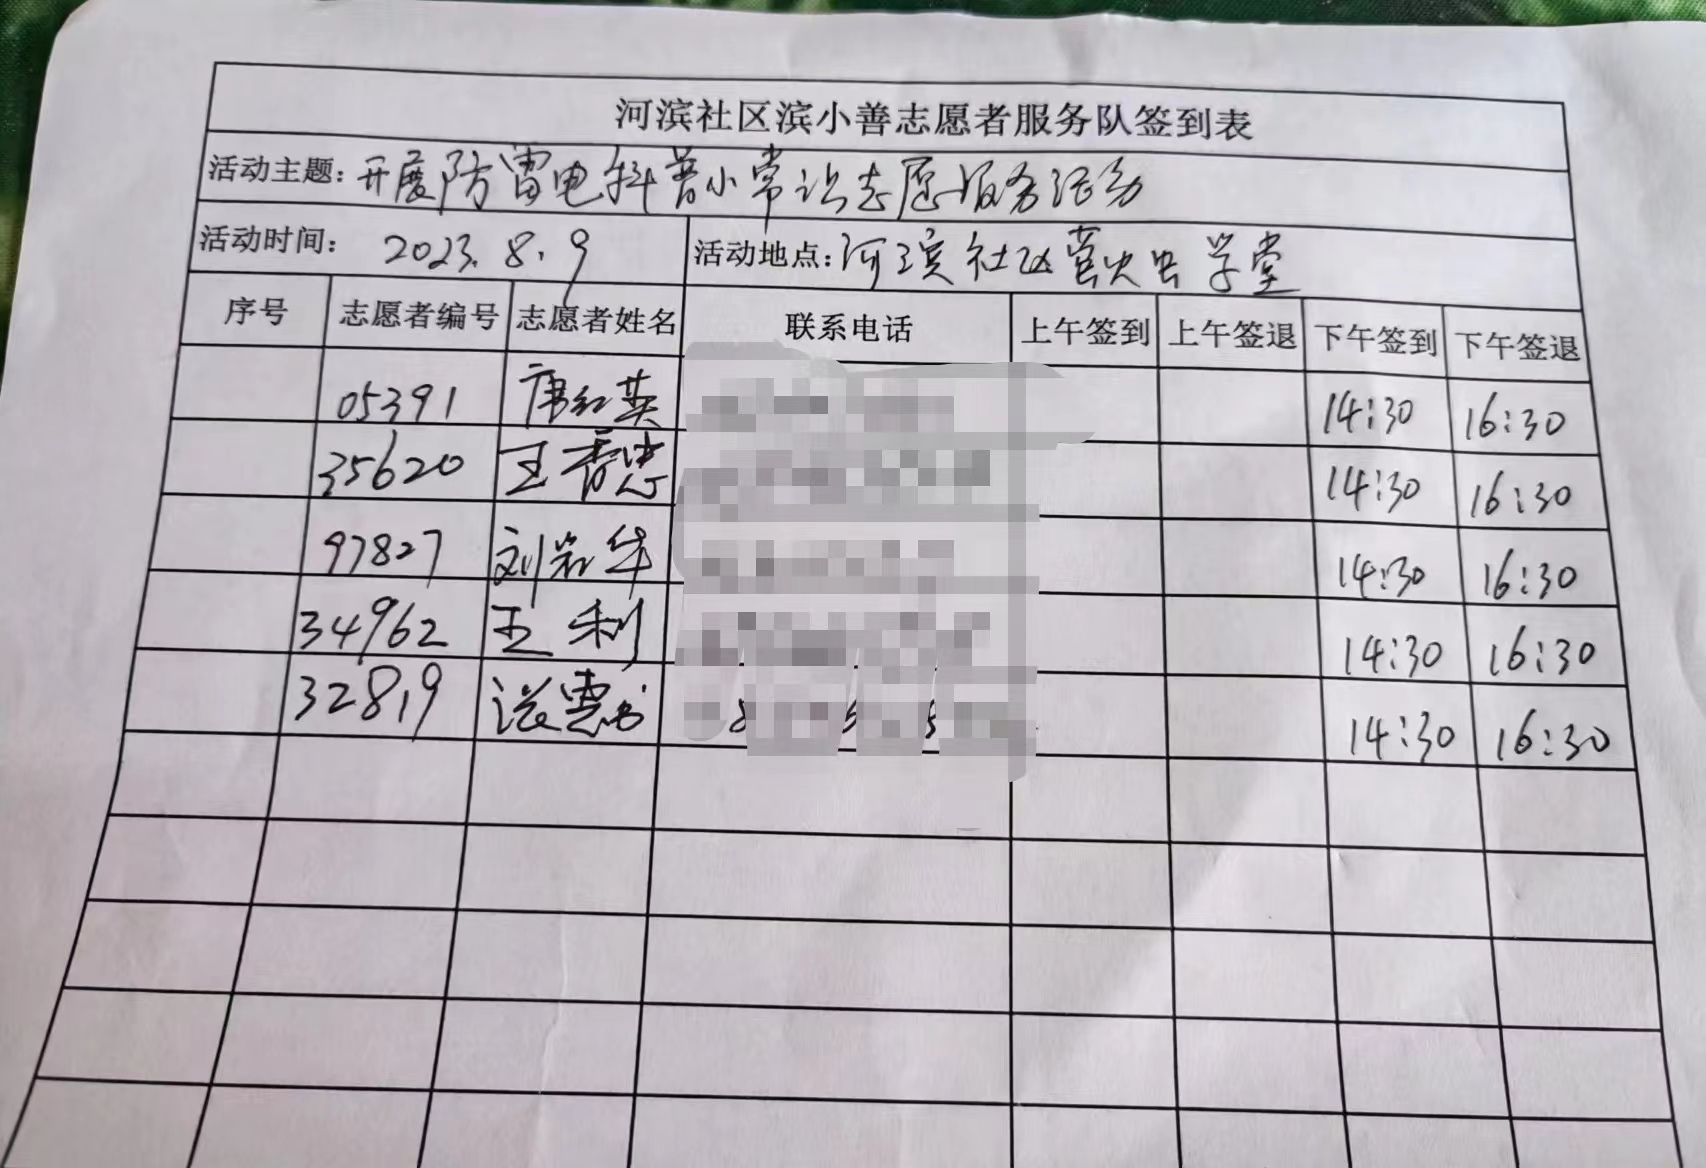 河滨社区滨小善志愿者服务队签到表
活动主题：开展防雷电科普小常识志愿服务活动
活动时间： 2023.8.9 活动地点：河滨社区萤火虫学堂
序号 志愿者编号 志愿者姓名 联系电话 上午签到 上午签退 下午签到 下午签退
05391 唐红英 14:30 16:30
35620 王秀忠 14:30 16:30
97827 刘岩华 14:30 16:30
34962 王利 14:30 16:30
32819 14:30 16:30